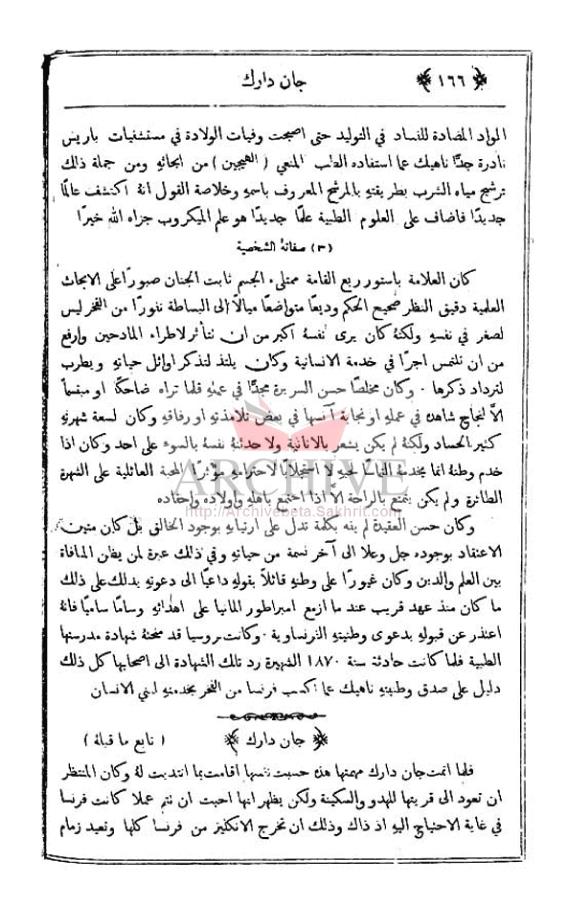 ﴿ ١٦٦ ﴾ جان دارك
المواد المضادة للفساد في التوليد حتى اصبحت وفيات الولادة في مستشفيات باريس
نادرة جدًّا ناهيك عما استفاده الطب المنعي ( الهيجين ) من ابحاثهِ ومن جملة ذلك
ترشيح مياه الشرب بطريقتهِ بالمرشح المعروف باسمهِ وخلاصة القول انهُ اكتشف عالمًا
جديدًا فاضاف على العلوم الطبية علمًا جديدًا هو علم الميكروب جزاه الله خيرًا
(٣) صفاتهُ الشخصية
كان العلامة باستور ربع القامة ممتلىء الجسم ثابت الجنان صبورًا على الابحاث
العلمية دقيق النظر صحيح الحكم وديعًا متواضعًا ميالًا إلى البساطة نفورًا من الفخر ليس
لصغر في نفسهِ ولكنهُ كان يرى نفسهُ اكبر من ان تتأثر لاطراء المادحين وارفع
من ان تلتمس اجرًا في خدمة الانسانية وكان يلتذ لتذكر اوائل حياتهِ ويطرب
لترداد ذكرها ٠ وكان مخلصًا حسن السريرة مجدًّا في عملهِ قلما تراه ضاحكًا او مبتسمًا
الاَّ لنجاح شاهده في عملهِ او نجابة آنسها في بعض تلامذتهِ او رفاقهِ وكان لسعة شهرتهِ
كثير الحساد ولكنهُ لم يكن يشعر بالانانية ولا حدثتهُ نفسهُ بالسوء على احد وكان اذا
خدم وطنهُ انما يخدمهُ التماسًا لخيرهِ لا استجلابًا لاحتفاء مؤثرًا المحبة العائلية على الشهرة
الطائرة ولم يكن يتمتع بالراحة الا اذا اجتمع باهلهِ واولاده واحفاده
وكان حسن العقيدة لم يفه بكلمة تدل على ارتيابهِ بوجود الخالق بل كان متين
الاعتقاد بوجوده جل وعلا الى آخر نسمة من حياتهِ وفي ذلك عبرة لمن يظن المنافاة
بين العلم والدين وكان غيورًا على وطنهِ قائلًا بقولهِ داعيًا الى دعوتهِ يدلك على ذلك
ما كان منذ عهد قريب عند ما ازمع امبراطور المانيا على اهدائهِ وسامًا ساميًا فانهُ
اعتذر عن قبولهِ بدعوى وطنيتهِ الفرنساوية ٠ وكانت بروسيا قد منحتهُ شهادة مدرستها
الطبية فلما كانت حادثة سنة ١٨٧٠ الشهيرة رد تلك الشهادة الى اصحابها كل ذلك
دليل على صدق وطنيتهِ ناهيك عما اكسب فرنسا من الفخر بخدمتهِ لبني الانسان
﴿ جان دارك ﴾ ( تابع ما قبلهُ )
فلما اتمت جان دارك مهمتها هذه حسبت نفسها اقامت بما انتدبت لهُ وكان المنتظر
ان تعود الى قريتها للهدو والسكينة ولكن يظهر انها احبت ان تتم عملًا كانت فرنسا
في غاية الاحتياج اليهِ اذ ذاك وذلك ان تخرج الانكليز من فرنسا كلها وتعيد زمام
ARCHIVE
http://Archivebeta.Sakhrit.com